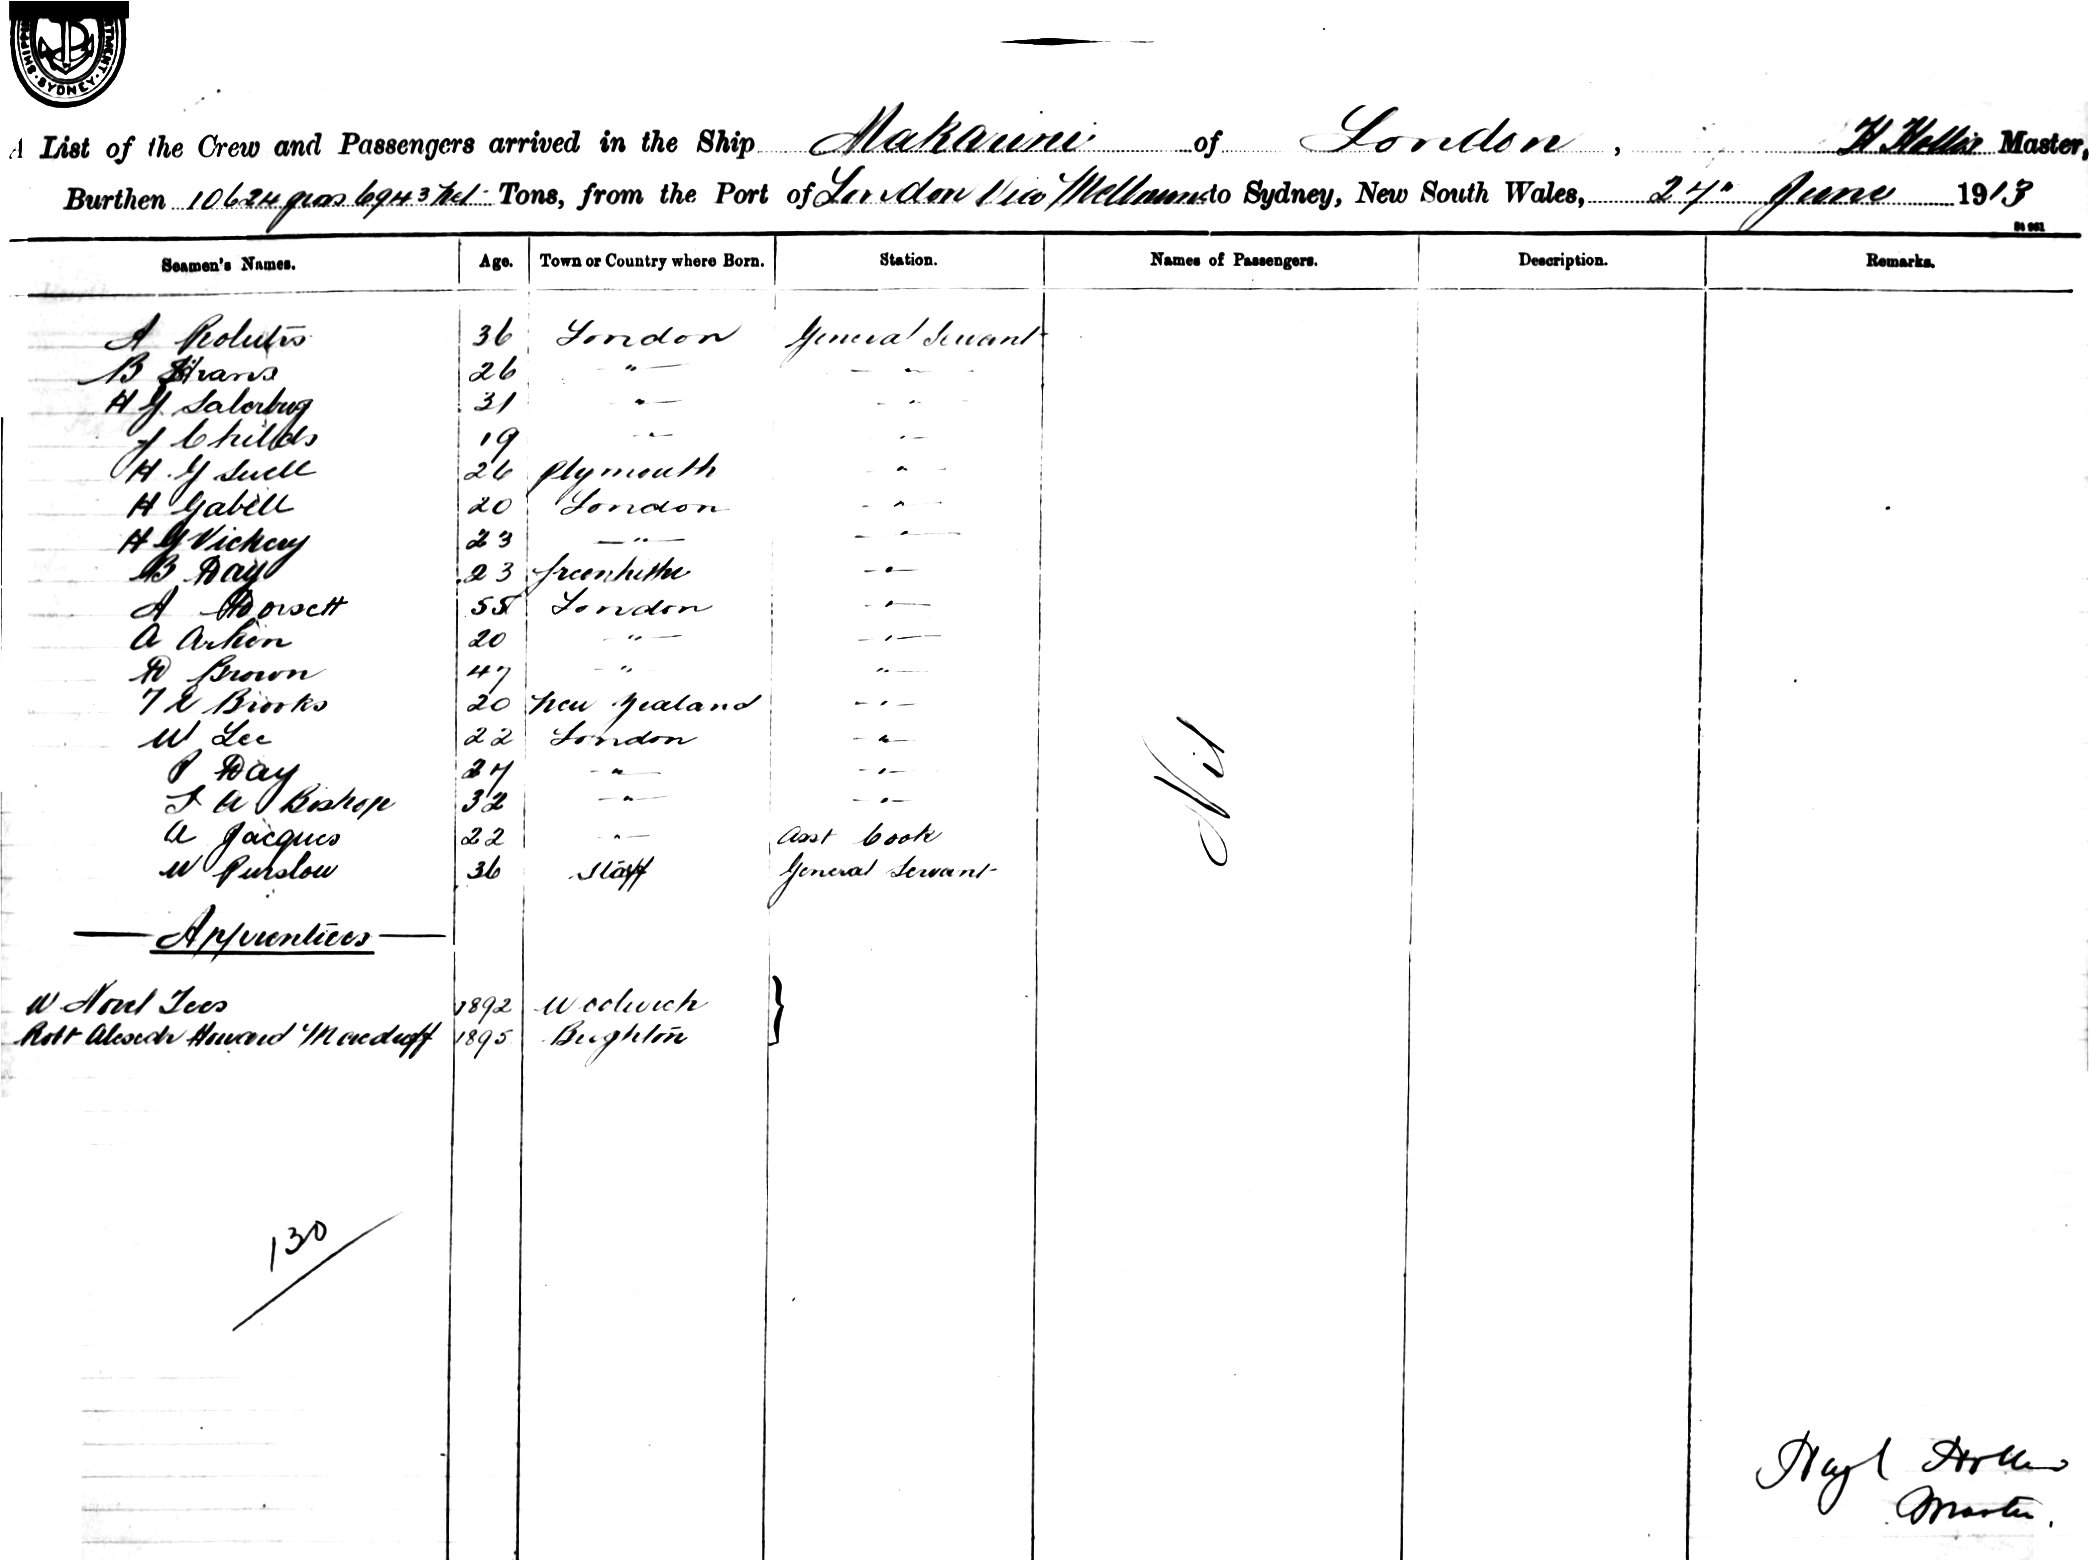 SHIPPING SYDNEY
A List of the Crew and Passengers arrived in the Ship Makarini of London, H Hollis Master,
Burthen 10624 gros 6943 net Tons, from the Port of London Via Melbourne to Sydney, New South Wales, 24" June 1913
Seamen's Names. Age. Town or Country where Born. Station. Names of Passengers. Description. Remarks.
A 36 London General Servant
B 26 " "
H G 31 " "
J Childs 19 " "
H G Snell 26 Plymouth "
H Gabell 20 London "
H G Vickery 23 " "
B Day 23 Greenhithe "
A Dorsett 55 London "
A 20 " "
D Brown 47 " "
T E Brooks 20 New Zealand "
W Lee 22 London "
P Day 27 " "
F A Bishop 32 " "
A Jacques 22 " Asst Cook
W Purslow 36 Staff General Servant
Nil
Apprentices
W Noel Tees 1892 Woolwich
Robt Howard 1895 Brighton
130
Hollis
Master.